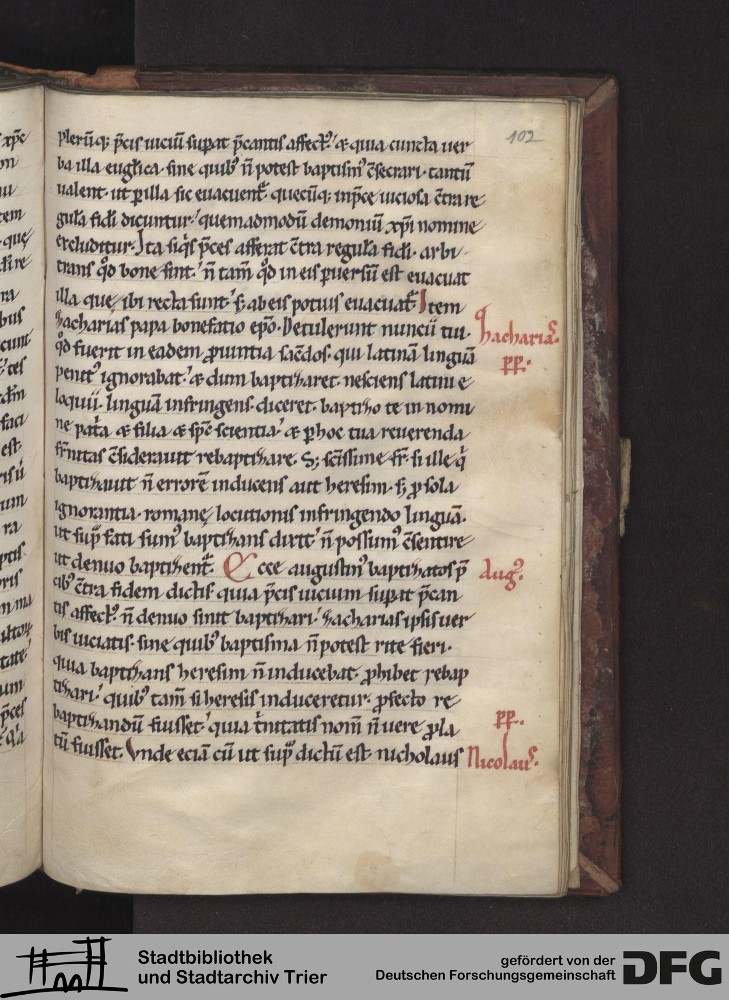 102
plerūq; p̄cis uiciū supat p̄cantis affectꝰ. & quia cuncta uer
ba illa euglica sine quibꝰ n̄ potest baptismꝰ c̄secrari. tantū
ualent. ut p illa sic euacuent᷑ quecūq; in p̄ce uiciosa c̄tra re
gulā fidei dicuntur. quemadmodū demoniū xp̄i nomine
excluditur. Ita siq̄s p̄ces afferat c̄tra regulā fidei. arbi
trans qd̄ bone sint. n̄ tam̄ qd̄ in eis puersū est euacuat
illa quę ibi recta sunt. s; ab eis potius euacuat᷑. Item
zacharias papa bonefatio ep̄o. Detulerunt nuncii tui.
qd̄ fuerit in eadem puintia sac̄dos. qui latinā linguā
penitꝰ ignorabat. & dum baptizaret. nesciens latini e
loquii. linguā infringens. diceret. baptizo te in nomi
ne pat̄a & filia & sp̄c scientia. & p hoc tua reuerenda
fr̄nitas c̄siderauit rebaptizare. S; sc̄issime fr̄. si ille q̄
baptizauit n̄ errorē inducens aut heresim. s; p sola
ignorantia romanę locutionis infringendo linguā.
ut sup̄ fati sumꝰ baptizans dixit. n̄ possumꝰ c̄sentire
ut denuo baptizent᷑. Ecce augustinꝰ baptizatos p̄
cibꝰ c̄tra fidem dictis. quia p̄cis uicium supat p̄can
tis affectꝰ. n̄ denuo sinit baptizari. zacharias ipsis uer
bis uiciatis. sine quibꝰ baptisma n̄ potest rite fieri.
quia baptizans heresim n̄ inducebat. phibet rebap
tizari. quibꝰ tam̄ si heresis induceretur. pfecto re
baptizandū fuisset. quia t̄nitatis nom̄ n̄ uere pla
tū fuisset. Vnde eciā cū ut sup̄ dictū est nicholaus
zacharias.
pp.
Augꝰ.
pp.
Nicolaus.
Stadtbibliothek
und Stadtarchiv Trier
gefördert von der
Deutschen Forschungsgemeinschaft
DFG